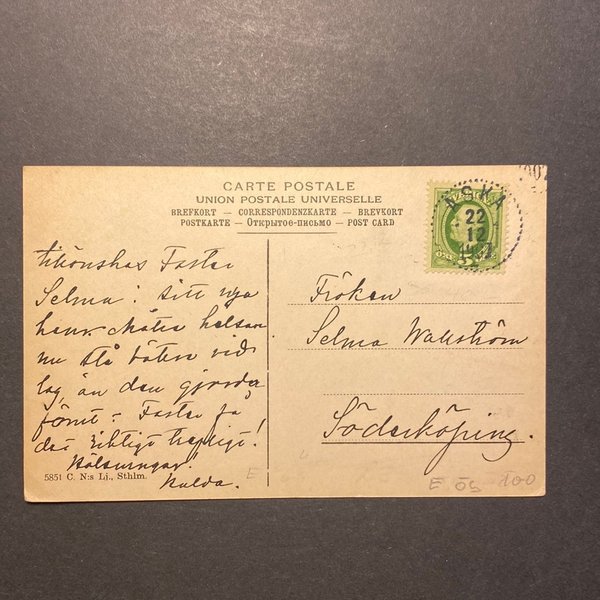 CARTE POSTALE
UNION POSTALE UNIVERSELLE
BREFKORT — CORRESPONDENZKARTE — BREVKORT
POSTKARTE — Открытое-письмо — POST CARD
NSKA
22
12
tillönskas Faster
Selma i sitt nya
hem. Måtte helsan
nu stå bättre vid
än den gjorde
förut. Faster
det riktigt trefligt!
Hälsningar!
Hulda.
Fröken
Selma Wallström
Söderköping.
5851 C. N:s Li., Sthlm.
E
E ög 100